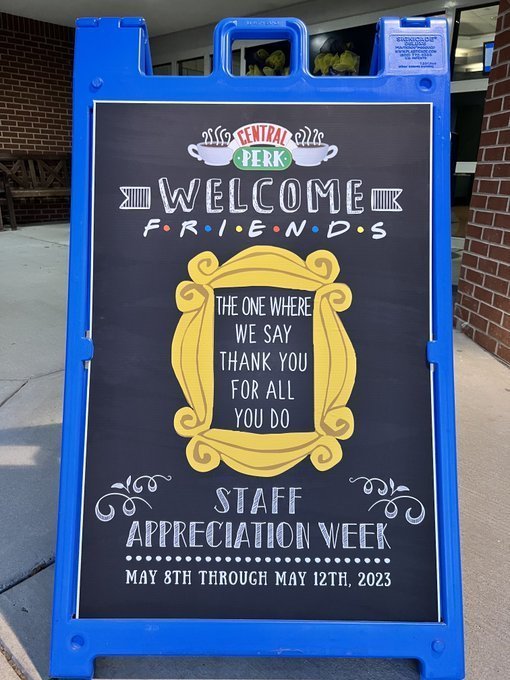 CENTRAL
PERK
WELCOME
F•R•I•E•N•D•S
THE ONE WHERE
WE SAY
THANK YOU
FOR ALL
YOU DO
STAFF
APPRECIATION WEEK
MAY 8TH THROUGH MAY 12TH, 2023